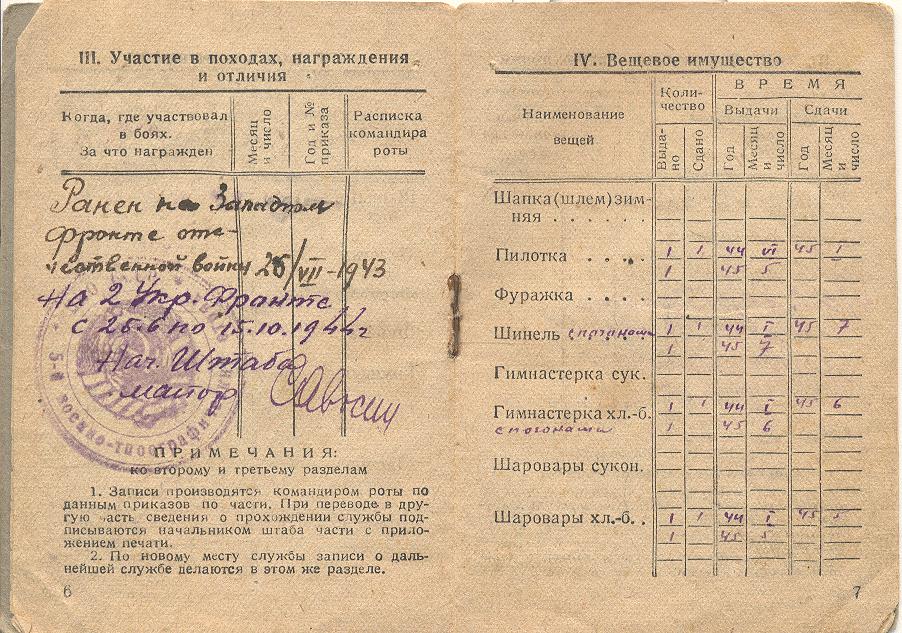 III. Участие в походах, награждения
и отличия
Когда, где участвовал
в боях.
За что награжден
Месяц
и число
Год и №
приказа
Расписка
командира
роты
Ранен на Западном
фронте оте-
чественной войны 26/VII-1943
На 2 Укр. Франте
с 25.6 по 15.10.1944г
Нач. Штаба
майор
5-й военно-топографи
ПРИМЕЧАНИЯ:
ко второму и третьему разделам
1. Записи производятся командиром роты по
данным приказов по части. При переводе в дру-
гую часть сведения о прохождении службы под-
писываются начальником штаба части с прило-
жением печати.
2. По новому месту службы записи о даль-
нейшей службе делаются в этом же разделе.
6
IV. Вещевое имущество
Наименование
вещей
Коли-
чество
ВРЕМЯ
Выдачи
Сдачи
Выда-
но
Сдано
Год
Месяц
и
число
Год
Месяц
и
число
Шапка (шлем) зим-
няя . . . . . .
Пилотка . . . . 1 1 44 VI 45 1
1 45 5
Фуражка . . . .
Шинель с погонами 1 1 44 I 45 7
1 45 7
Гимнастерка сук.
Гимнастерка хл.-б. 1 1 44 I 45 6
с погонами 1 45 6
Шаровары сукон.
Шаровары хл.-б. . 1 1 44 I 45 5
1 45 5
7